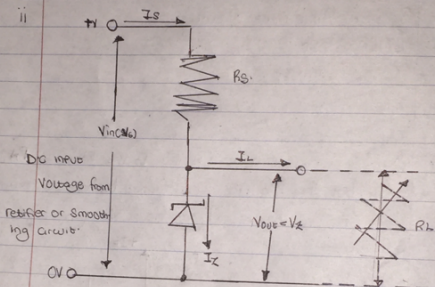 ii
+V
Is
Rs.
Vin(Vs)
IL
DC input
Voltage from
retifier or smooth
ing circuit.
Vout = Vz
RL
Iz
0V